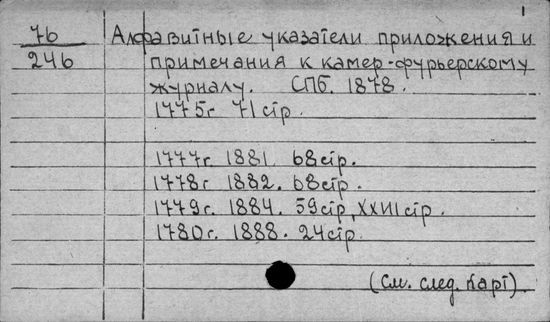 1
76 Алфавитные указатели приложения и
246 примечания к камер-фурьерскому
журналу. СПб. 1878.
1775г 71 стр.
1777г. 1881. 68 стр.
1778г 1882. 68 стр.
1779г. 1884. 59 стр, XXIII стр.
1780г. 1888. 24 стр.
(См. след. карт).